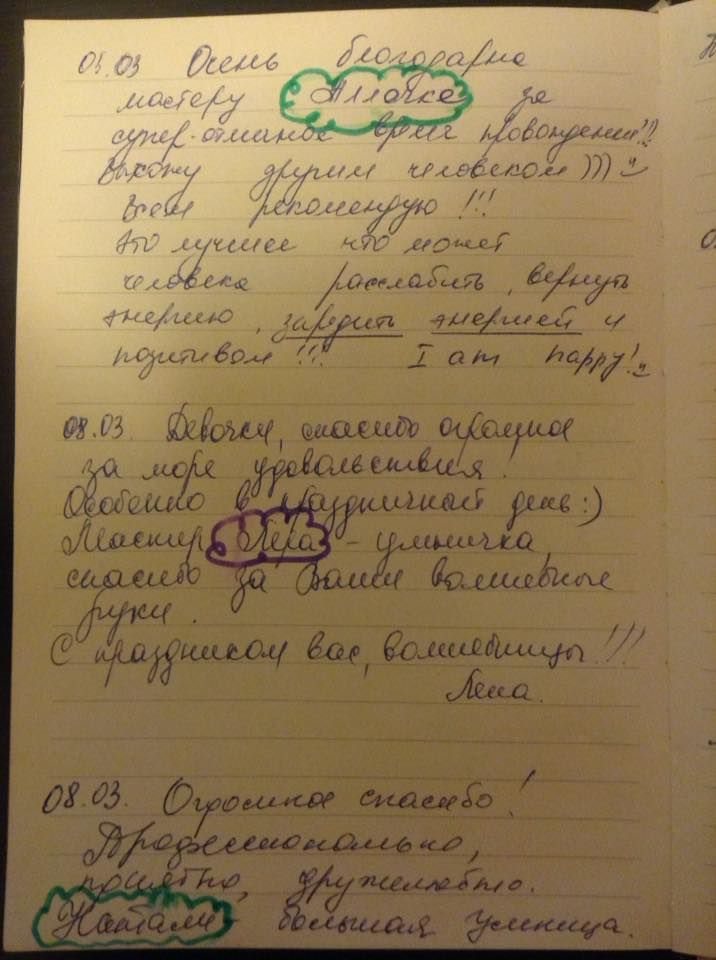 03.03 Очень благодарна
мастеру Аллочке за
супер-отличное время провождение!!!
Выхожу другим человеком))) 
Всем рекомендую!!!
Это лучшее что может
человека расслабить, вернуть
энергию, зарядить энергией и
позитивом!!! I am happy!
08.03. Девочки, спасибо огромное
за море удовольствия.
Особенно в праздничный день:)
Мастер Лера - умничка,
спасибо за Ваши волшебные
руки.
С праздником вас, волшебницы!!!
Лена.
08.03. Огромное спасибо!
Профессионально,
понятно, дружелюбно.
Натали - большая умница.